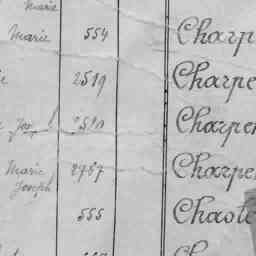 Marie
Marie 554 Charp
2519 Charpe
Jos 2510 Charpen
Marie 2787 Charpe
Joseph
555 Chast